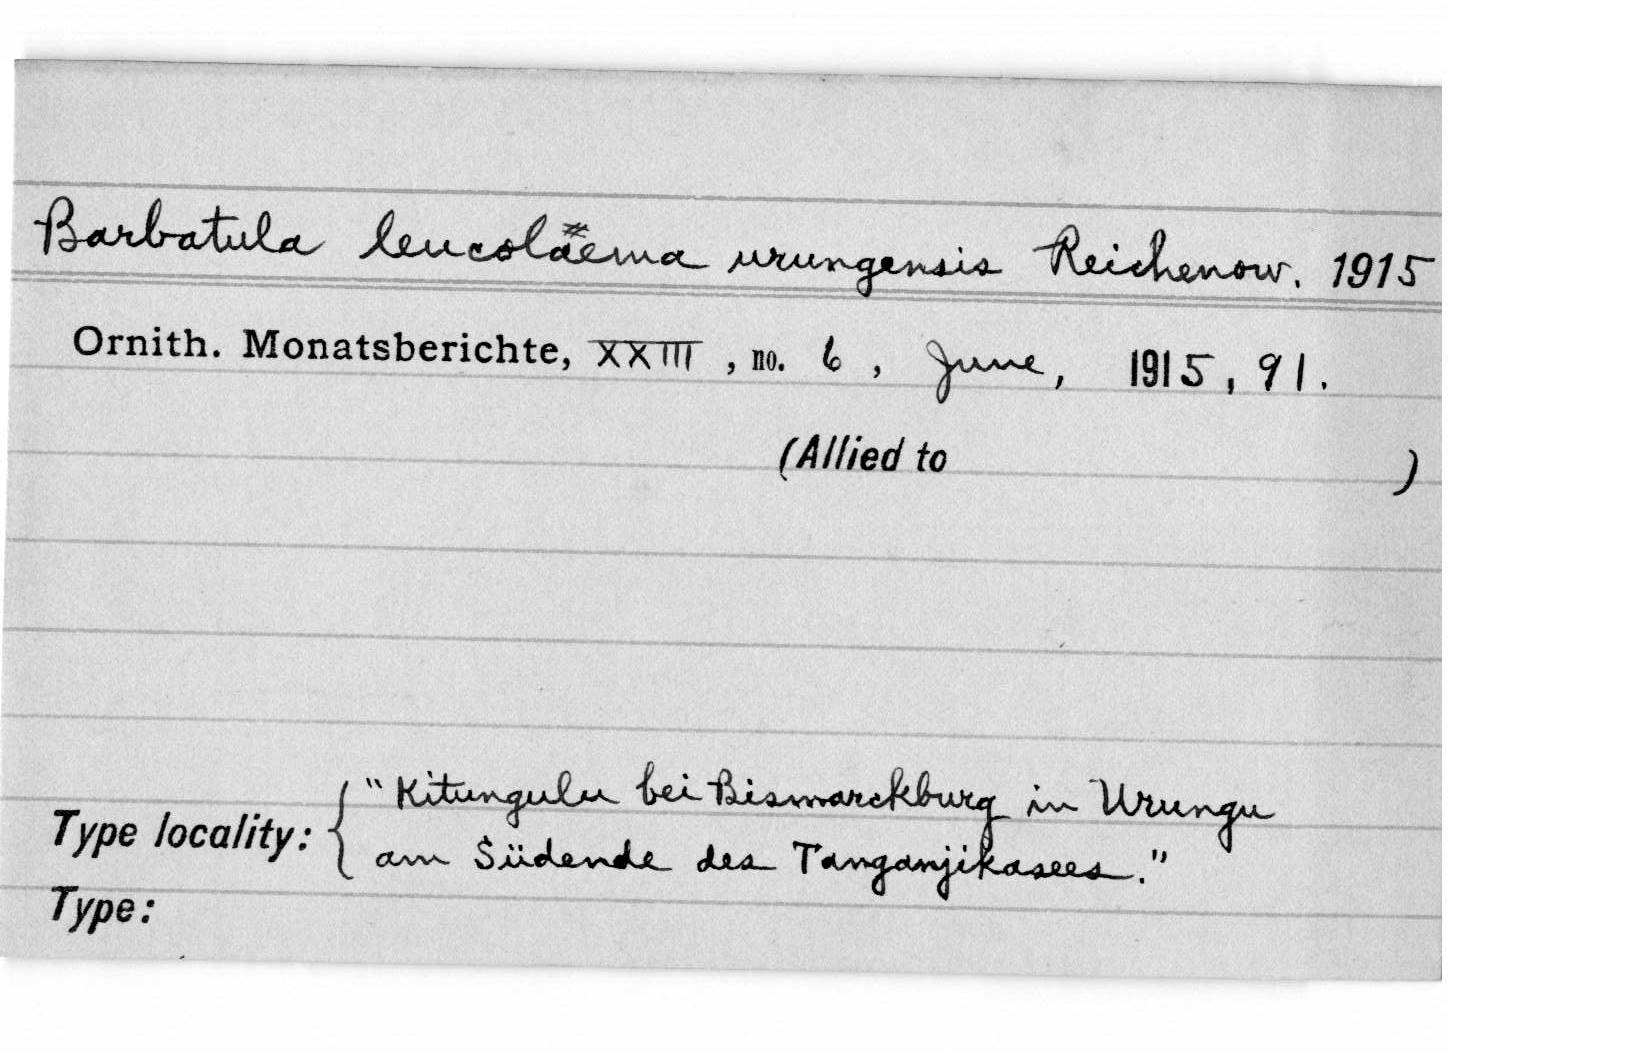 Barbatula leucolaema urungensis Reichenow. 1915
Ornith. Monatsberichte, XXIII, no. 6, June, 1915, 91.
(Allied to )
"Kitungulu bei Bismarckburg in Urungu
Type locality: { am Südende des Tanganjikasees."
Type: